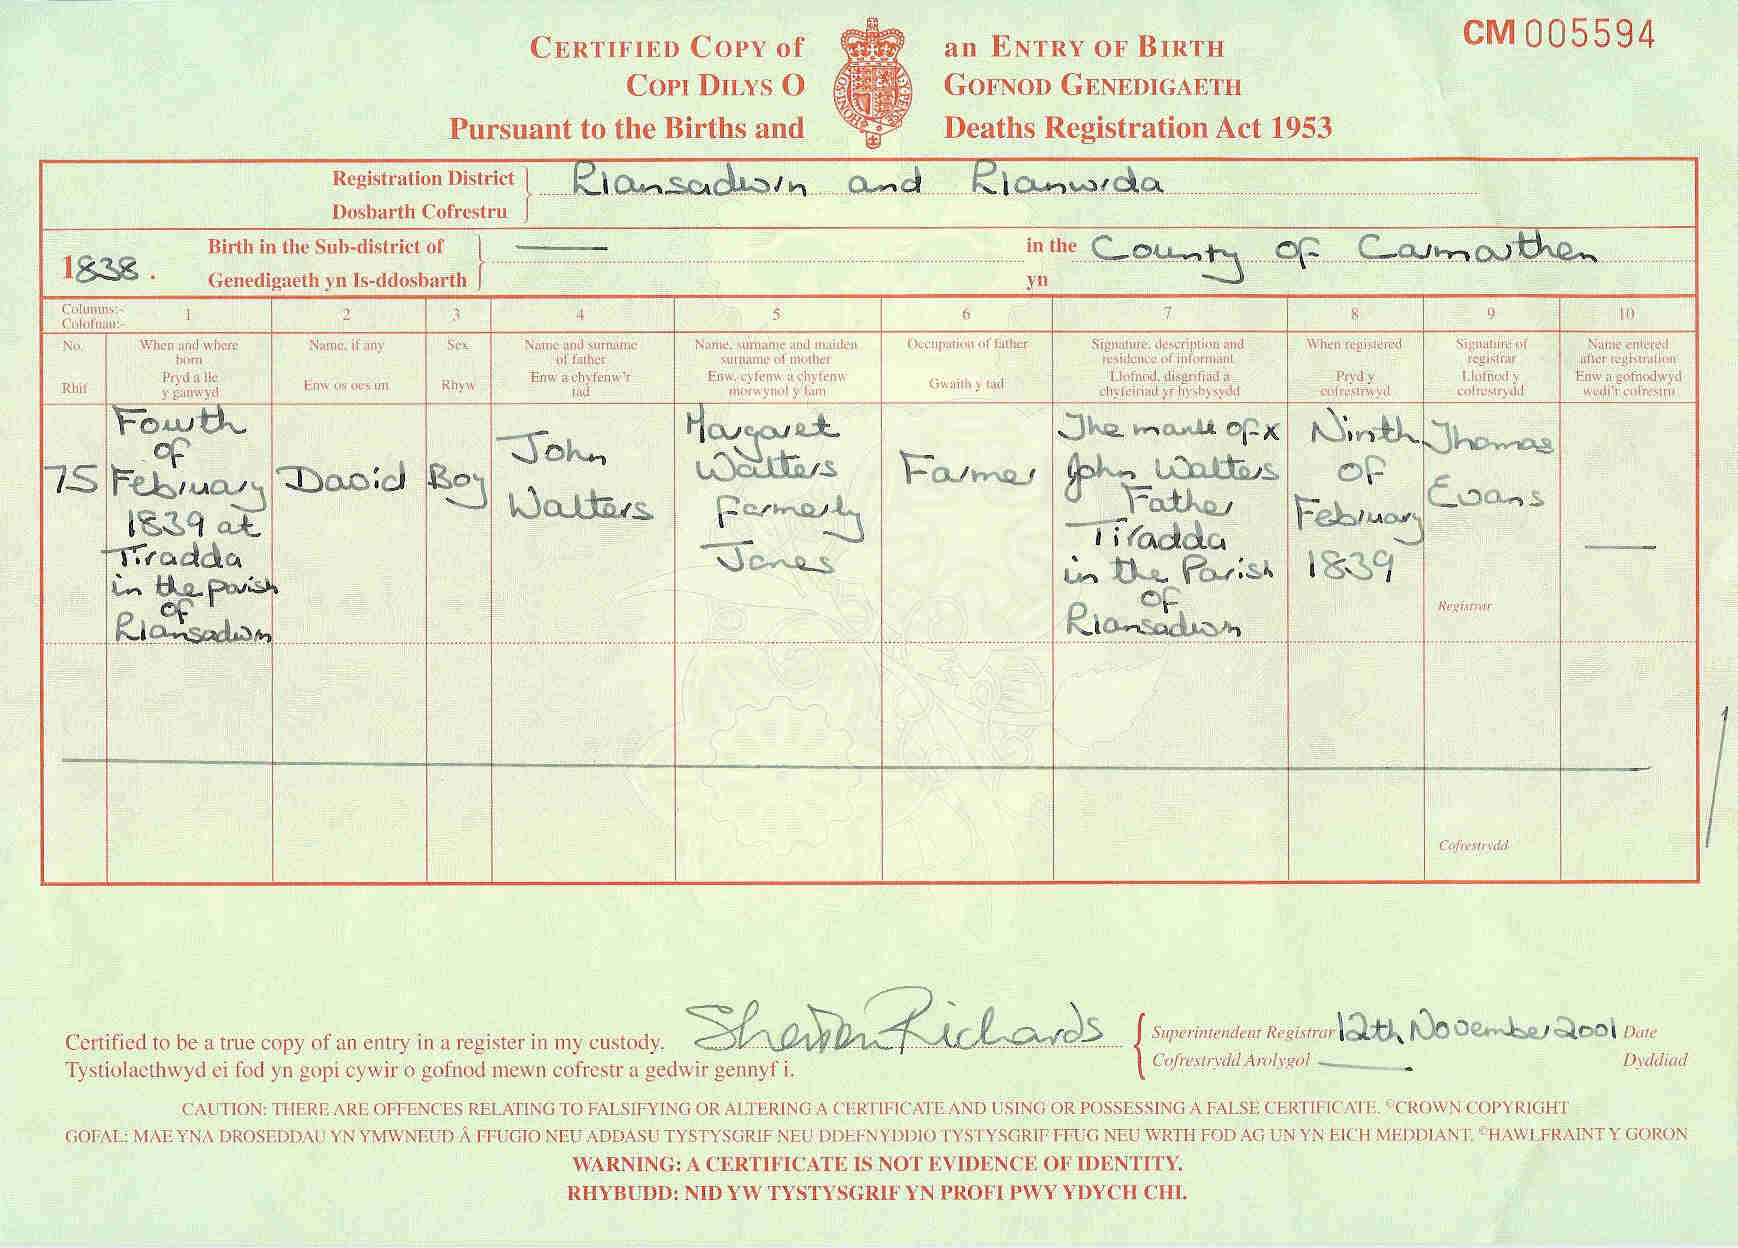 CM 005594
CERTIFIED COPY of an ENTRY OF BIRTH
COPI DILYS O GOFNOD GENEDIGAETH
Pursuant to the Births and Deaths Registration Act 1953
Registration District Llansadwrn and Llanwrda
Dosbarth Cofrestru
1838. Birth in the Sub-district of — in the County of Carmarthen
Genedigaeth yn Is-ddosbarth yn
Columns:- 1 2 3 4 5 6 7 8 9 10
Colofnau:-
No.
Rhif
When and where
born
Pryd a lle
y ganwyd
Name, if any
Enw os oes un
Sex
Rhyw
Name and surname
of father
Enw a chyfenw'r
tad
Name, surname and maiden
surname of mother
Enw, cyfenw a chyfenw
morwynol y fam
Occupation of father
Gwaith y tad
Signature, description and
residence of informant
Llofnod, disgrifiad a
chyfeiriad yr hysbysydd
When registered
Pryd y
cofrestrwyd
Signature of
registrar
Llofnod y
cofrestrydd
Name entered
after registration
Enw a gofnodwyd
wedi'r cofrestru
75
Fourth
of
February
1839 at
Tiradda
in the parish
of
Llansadwrn
David
Boy
John
Walters
Margaret
Walters
Formerly
Jones
Farmer
The mark of x
John Walters
Father
Tiradda
in the Parish
of
Llansadwrn
Ninth
of
February
1839
Thomas
Evans
Registrar
—
Cofrestrydd
Certified to be a true copy of an entry in a register in my custody. Richards Superintendent Registrar 12th November 2001 Date
Tystiolaethwyd ei fod yn gopi cywir o gofnod mewn cofrestr a gedwir gennyf i. Cofrestrydd Arolygol — Dyddiad
CAUTION: THERE ARE OFFENCES RELATING TO FALSIFYING OR ALTERING A CERTIFICATE AND USING OR POSSESSING A FALSE CERTIFICATE. ©CROWN COPYRIGHT
GOFAL: MAE YNA DROSEDDAU YN YMWNEUD Â FFUGIO NEU ADDASU TYSTYSGRIF NEU DDEFNYDDIO TYSTYSGRIF FFUG NEU WRTH FOD AG UN YN EICH MEDDIANT. ©HAWLFRAINT Y GORON
WARNING: A CERTIFICATE IS NOT EVIDENCE OF IDENTITY.
RHYBUDD: NID YW TYSTYSGRIF YN PROFI PWY YDYCH CHI.